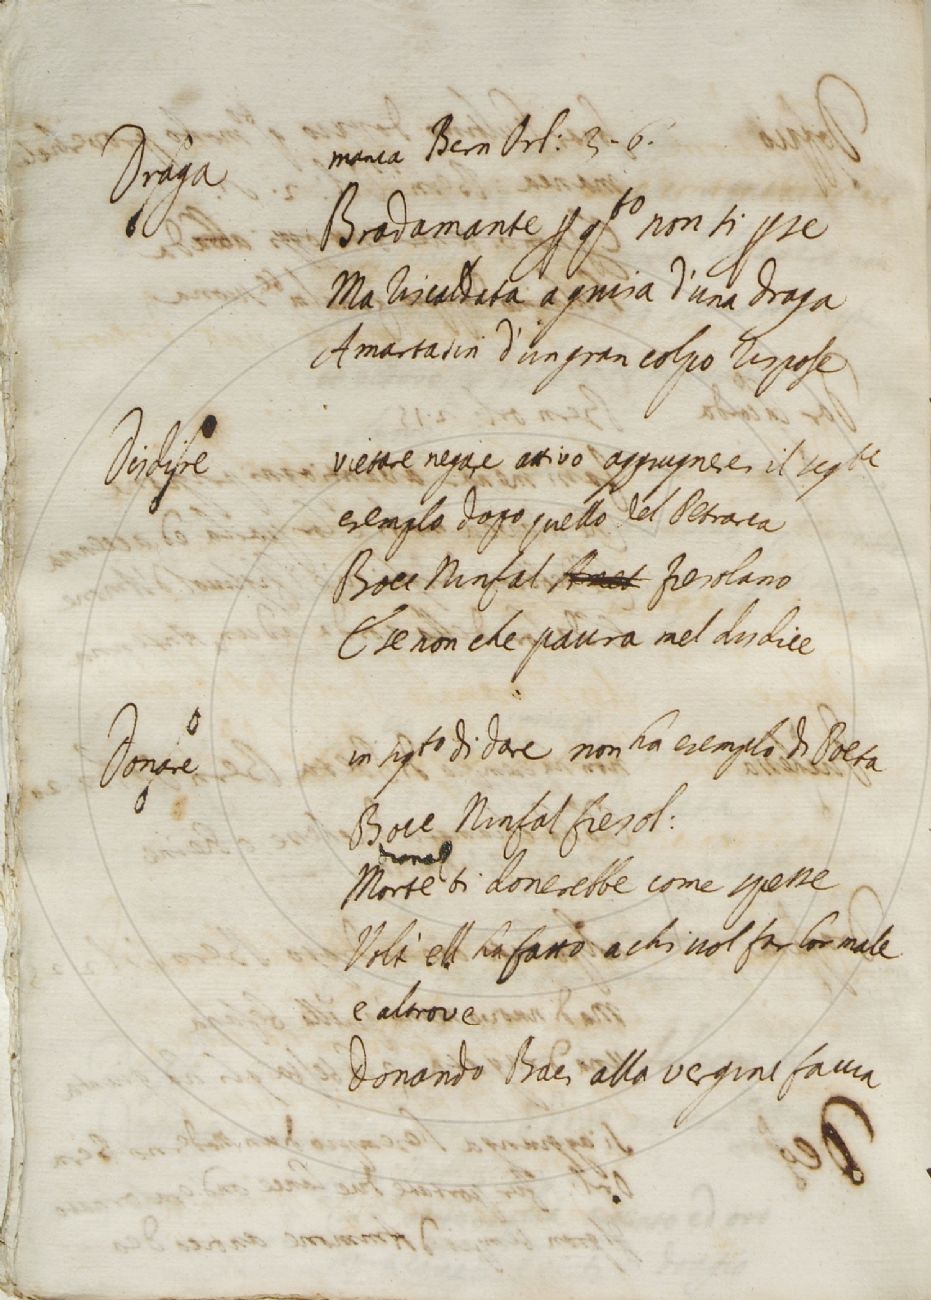 Draga
manca Bern Orl: 3-6.
Bradamante p q.to non si pse
Ma riscaldata a guisa d'una draga
A martasin d'un gran colpo rispose
Disdire
vietare negare attivo aggiugnere il seg.te
esemplo dopo quello del Petrarca
Bocc Ninfal Amet fiesolano
E se non che paura mel disdice
Donare
in sig.to di dare non ha esemplo di Poeta
Bocc Ninfal fiesol:
Morte ti donerebbe come spesse
Volt' ell' ha fatto a chi vol far lor male
e altrove
Donando Baci alla vergine faccia